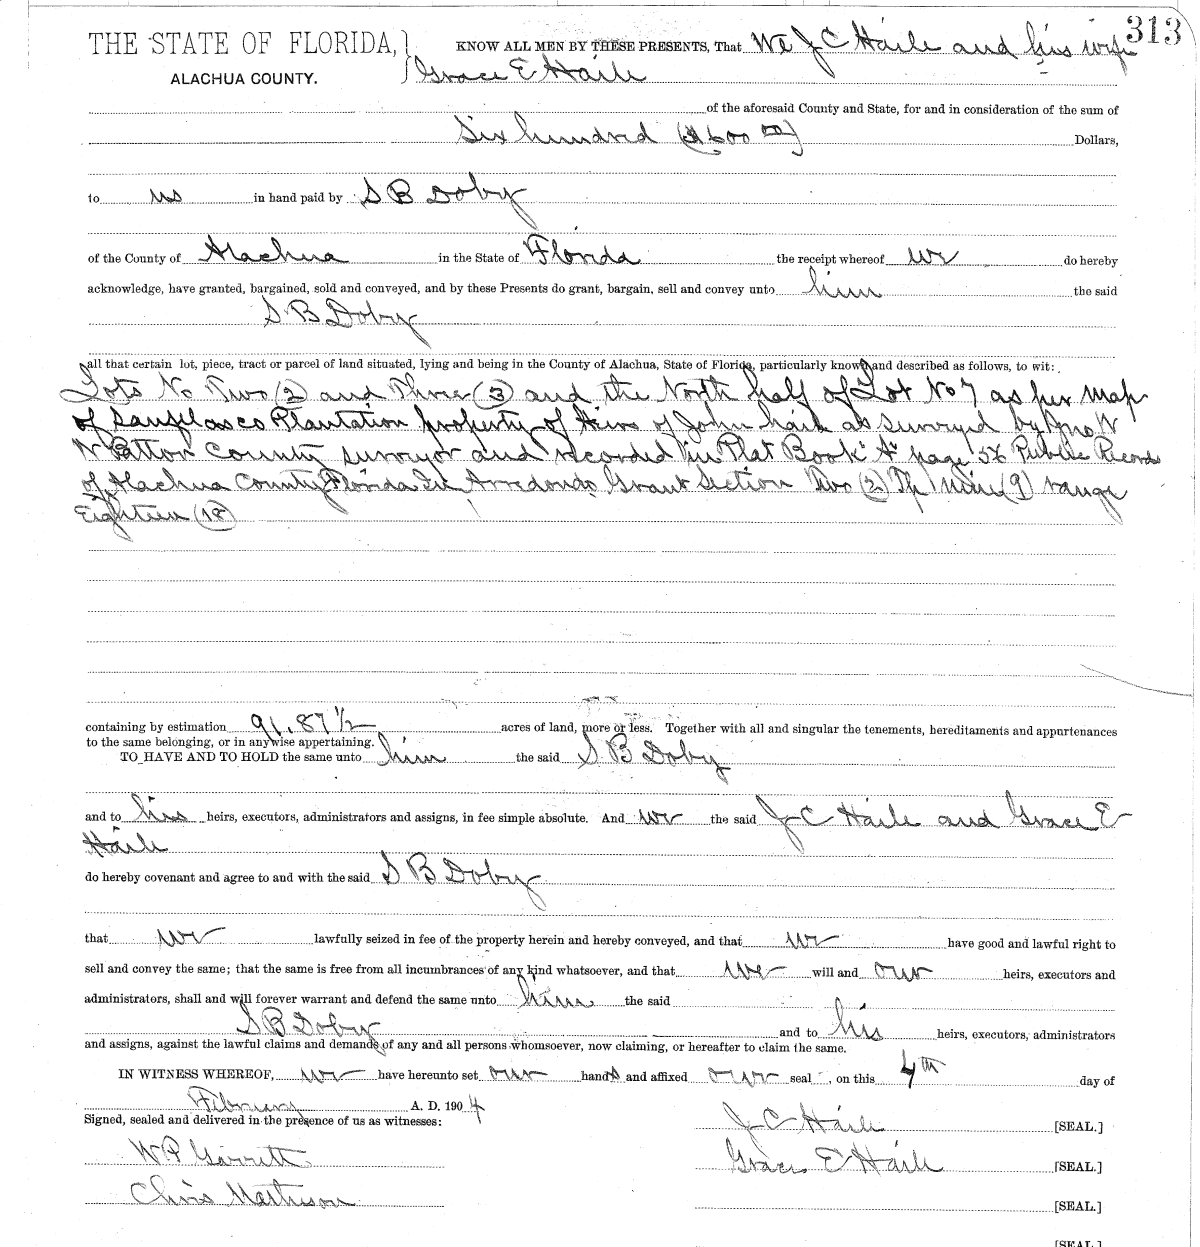 313
THE STATE OF FLORIDA,
ALACHUA COUNTY.
KNOW ALL MEN BY THESE PRESENTS, That We J C Haile and his wife
Grace E Haile
of the aforesaid County and State, for and in consideration of the sum of
Six hundred ($600 00) Dollars,
to us in hand paid by S B Doby
of the County of Alachua in the State of Florida the receipt whereof we do hereby
acknowledge, have granted, bargained, sold and conveyed, and by these Presents do grant, bargain, sell and convey unto him the said
S B Doby
all that certain lot, piece, tract or parcel of land situated, lying and being in the County of Alachua, State of Florida, particularly known and described as follows, to wit:
Lots No Two (2) and Three (3) and the North half of Lot No 7 as per map
of Sanfelasco Plantation property of Heirs of John Haile as surveyed by Jno W
W Patton County surveyor and recorded in Plat Book "A" page 56 Public Records
of Alachua County Florida In Arredondo Grant Section Two (2) Tp Nine (9) range
Eighteen (18)
containing by estimation 91.87 1/2 acres of land, more or less. Together with all and singular the tenements, hereditaments and appurtenances
to the same belonging, or in anywise appertaining.
TO HAVE AND TO HOLD the same unto him the said S B Doby
and to his heirs, executors, administrators and assigns, in fee simple absolute. And we the said J C Haile and Grace E
Haile
do hereby covenant and agree to and with the said S B Doby
that we lawfully seized in fee of the property herein and hereby conveyed, and that we have good and lawful right to
sell and convey the same; that the same is free from all incumbrances of any kind whatsoever, and that we will and our heirs, executors and
administrators, shall and will forever warrant and defend the same unto him the said
S B Doby and to his heirs, executors, administrators
and assigns, against the lawful claims and demands of any and all persons whomsoever, now claiming, or hereafter to claim the same.
IN WITNESS WHEREOF, we have hereunto set our hands and affixed our seal , on this 4th day of
February A. D. 1904
Signed, sealed and delivered in the presence of us as witnesses:
J C Haile [SEAL.]
W P Garrett
Grace E Haile [SEAL.]
Chris Matheson
[SEAL.]
[SEAL.]